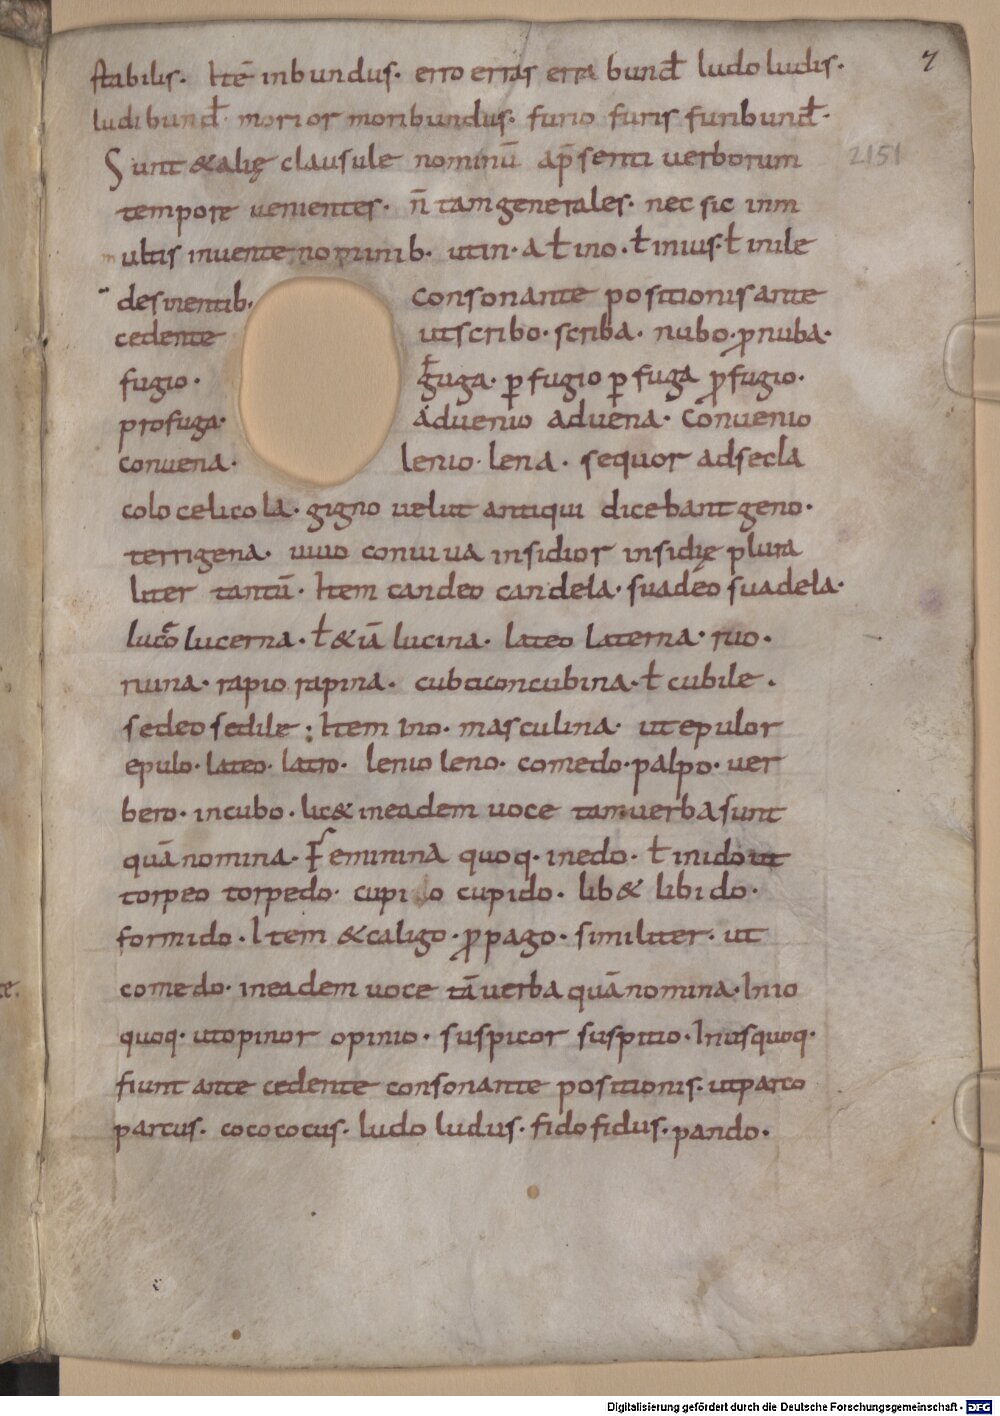 stabilis. Itē inbundus. erro erras erra bund̄ ludo ludis. 7
ludibund̄. morior moribundus. furio furis furibund̄.
Sunt & alię clausule nominū ap̄senti uerborum 2151
tempore uenientes. n̄ tam generales. nec sic inm
ultis inuente nominib. utin. a ƚ ino. ƚ inius. ƚ inile
desinentib. consonante positionis ante
cedente ut scribo. scriba. nubo. ꝓnuba.
fugio. fuga. ꝑfugio ꝑfuga ꝓfugio.
profuga. Aduenio aduena. Conuenio
conuena. lenio. lena. sequor adsecla
colo celicola. gigno uelut antiqui dicebant geno.
terrigena. uiuo conuiua insidior insidię plura
liter tantū. Item candeo candela. suadeo suadela.
luceo lucerna. ƚ & iā lucina. lateo laterna. ruo.
ruina. rapio rapina. cubo concubina. ƚ cubile.
sedeo sedile. Item Ino. masculina. ut epulor
epulo. lateo. latro. lenio leno. comedo. palpo. uer
bero. incubo. lic& ineadem uoce tam uerba sunt
quā nomina. Feminina quoq. inedo. ƚ inido ut
torpeo torpedo. cupi o cupido. lib& libido.
formido. Item & caligo. ꝓpago. similiter. ut
comedo. ineadem uoce tā uerba quā nomina. Inio
quoq. ut opinor opinio. suspicor suspitio. Inusquoq.
fiunt ante cedente consonante positionis. ut parco
parcus. coco cocus. ludo ludus. fido fidus. pando.
Digitalisierung gefördert durch die Deutsche Forschungsgemeinschaft - DFG